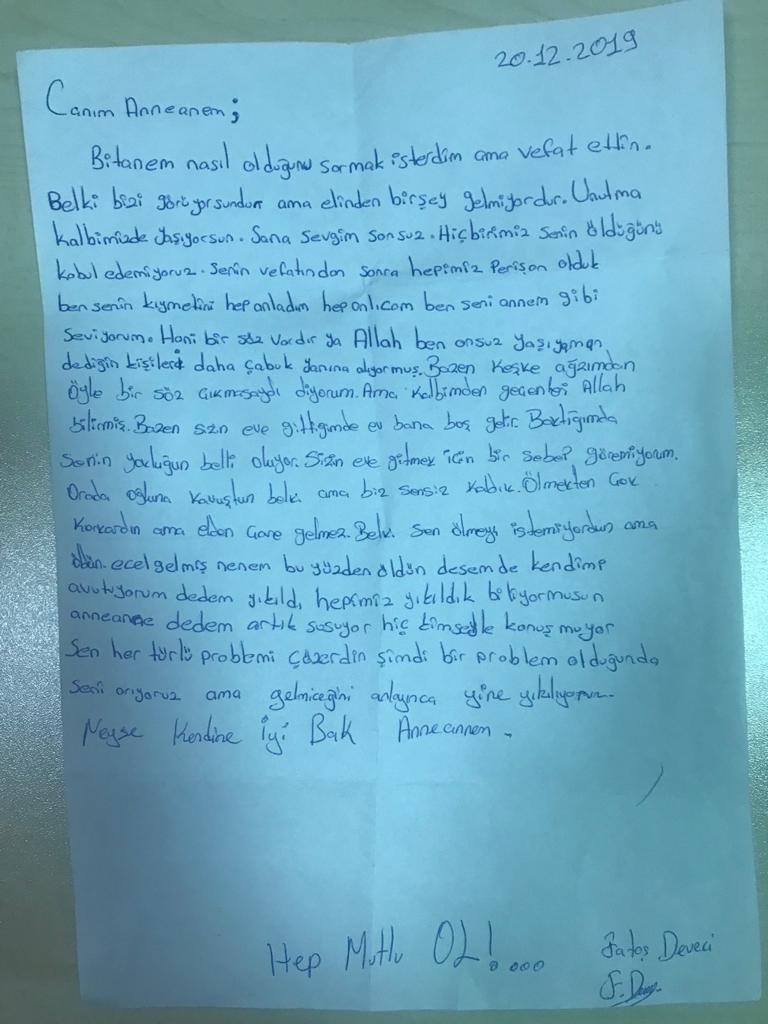 20.12.2019
Canım Anneanem;
Bitanem nasıl olduğunu sormak isterdim ama vefat ettin.
Belki bizi görüyorsundur ama elinden birşey gelmiyordur. Unutma
kalbimizde yaşıyorsun. Sana sevgim sonsuz. Hiçbirimiz senin öldüğünü
kabul edemiyoruz. Senin vefatından sonra hepimiz Perişan olduk
ben senin kıymetini hep anladım hep anlıcam ben seni annem gibi
Seviyorum. Hani bir söz vardır ya Allah ben onsuz yaşıyaman
dediğin kişileri daha çabuk yanına alıyormuş. Bazen Keşke ağzımdan
Öyle bir söz çıkmasaydı diyorum. Ama kalbimden geçenleri Allah
bilirmiş. Bazen sizin eve gittiğimde ev bana boş gelir. Baktığımda
Senin yokluğun belli oluyor. Sizin eve gitmek için bir sebep göremiyorum.
Orada oğluna kavuştun belki ama biz sensiz kaldık. Ölmekten Çok
Korkardın ama elden çare gelmez. Belki sen ölmeyi istemiyordun ama
öldün. ecel gelmiş nenem bu yüzden öldün desem de kendimi
avutuyorum dedem yıkıldı, hepimiz yıkıldık biliyormusun
anneanne dedem artık susuyor hiç kimseyle konuşmuyor
Sen her türlü problemi çözerdin şimdi bir problem olduğunda
Seni arıyoruz ama gelmiceğini anlayınca yine yıkılıyoruz.
Neyse Kendine İyi Bak Anneannem.
Hep Mutlu OL!....
Fatoş Deveci